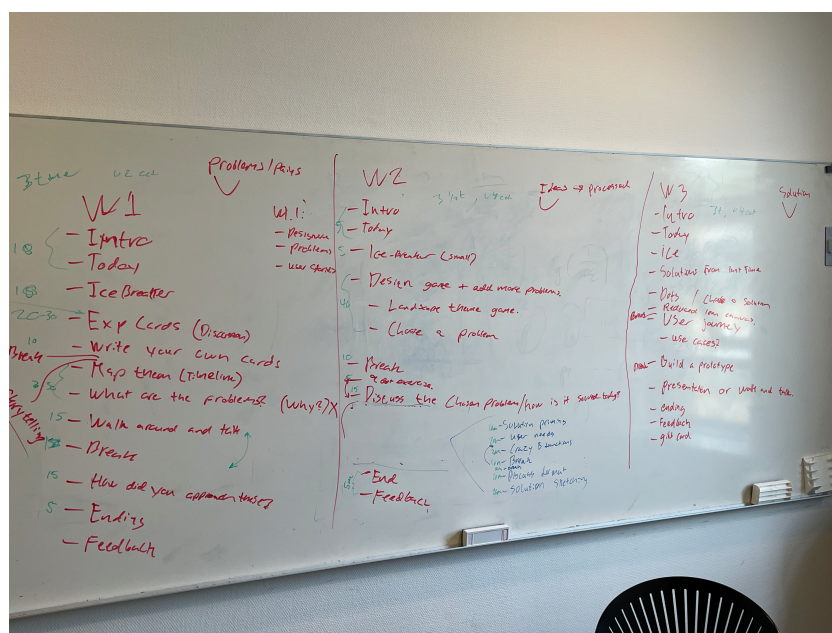 Problems/Pains
W1
- Intro
- Today
- Ice Breaker
- Exp Cards (Discussion)
- Write your own cards
Break
- Map them (Timeline)
- What are the problems? (Why?) X
Storytelling
15 - Walk around and talk
- Break
15 - How did you approach these?
5 - Ending
- Feedback
W.1:
- Designer
- Problems
- User stories
W2
Ideas → processed
- Intro
- Today
5 - Ice-Breaker (small)
- Design game + add more problems.
- Landscape theme game.
- Choose a problem
10 - Break
15 - Discuss the Chosen problem/how is it solved today?
- Solution priming
- User needs
- Crazy 8
- Break
- Discuss format
- Solution sketching
- End
- Feedback
W3
Solution
- Intro
- Today
- ice
- Solutions from last time
- Dots / Choose a solution
- Reduced lean canvas.
- User journey
- use cases?
- Build a prototype
- Presentation or walk and talk.
- ending
- Feedback
- gift card